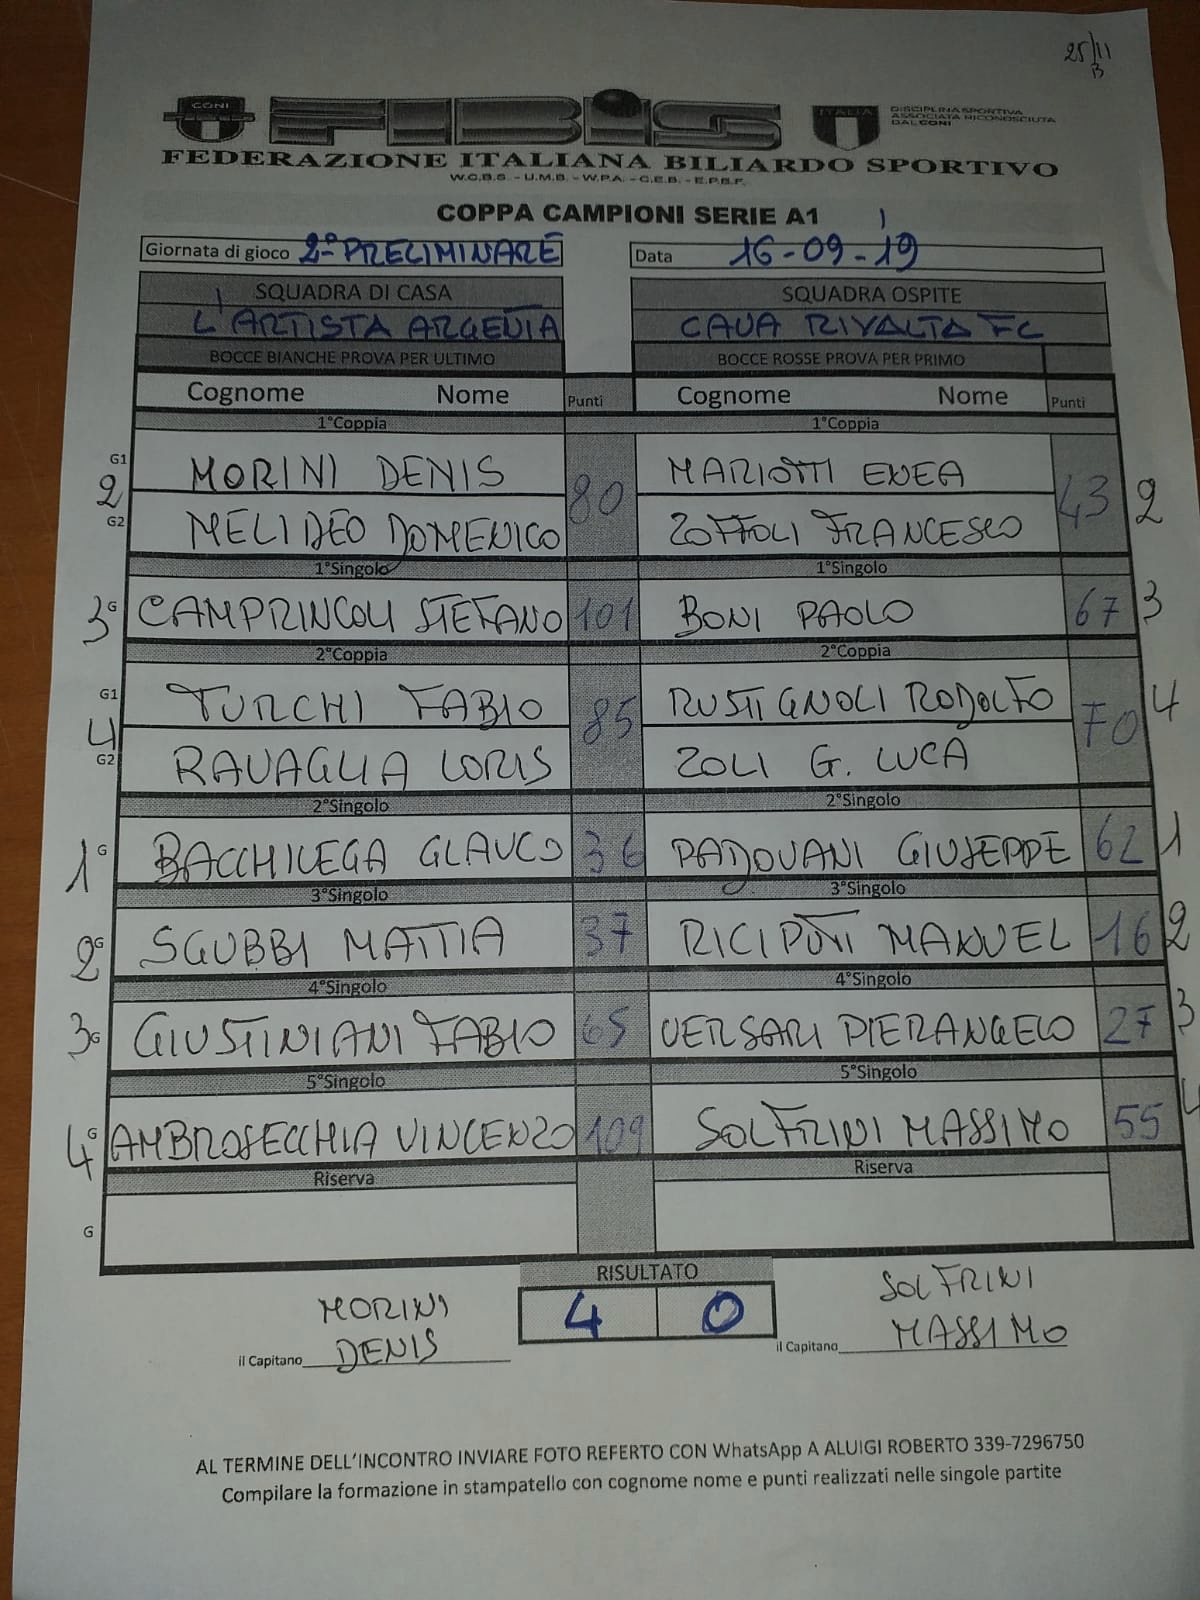 25/11
B
CONI
FIBiS
ITALIA
DISCIPLINA SPORTIVA
ASSOCIATA RICONOSCIUTA
DAL CONI
FEDERAZIONE ITALIANA BILIARDO SPORTIVO
W.C.B.S. - U.M.B. - W.P.A. - C.E.B. - E.P.B.F.
COPPA CAMPIONI SERIE A1
Giornata di gioco 2° PRELIMINARE Data 16-09-19
SQUADRA DI CASA SQUADRA OSPITE
L'ARTISTA ARGENTA CAVA RIVALTA FC
BOCCE BIANCHE PROVA PER ULTIMO BOCCE ROSSE PROVA PER PRIMO
Cognome Nome Punti Cognome Nome Punti
1°Coppia 1°Coppia
G1 MORINI DENIS MARIOTTI ENEA
2 80 43 2
G2 MELIDEO DOMENICO ZOFFOLI FRANCESCO
1°Singolo 1°Singolo
3 G CAMPRINCOLI STEFANO 101 BONI PAOLO 67 3
2°Coppia 2°Coppia
G1 TURCHI FABIO RUSTIGNOLI RODOLFO
4 85 70 4
G2 RAVAGLIA LORIS ZOLI G. LUCA
2°Singolo 2°Singolo
1 G BACCHILEGA GLAUCO 36 PADOVANI GIUSEPPE 62 1
3°Singolo 3°Singolo
2 G SGUBBI MATTIA 37 RICIPUTI MANUEL 16 2
4°Singolo 4°Singolo
3 G GIUSTINIANI FABIO 65 VERSARI PIERANGELO 27 3
5°Singolo 5°Singolo
4 G AMBROSECCHIA VINCENZO 109 SOLFRINI MASSIMO 55 4
Riserva Riserva
G
RISULTATO
4 0
MORINI SOLFRINI
il Capitano DENIS il Capitano MASSIMO
AL TERMINE DELL'INCONTRO INVIARE FOTO REFERTO CON WhatsApp A ALUIGI ROBERTO 339-7296750
Compilare la formazione in stampatello con cognome nome e punti realizzati nelle singole partite